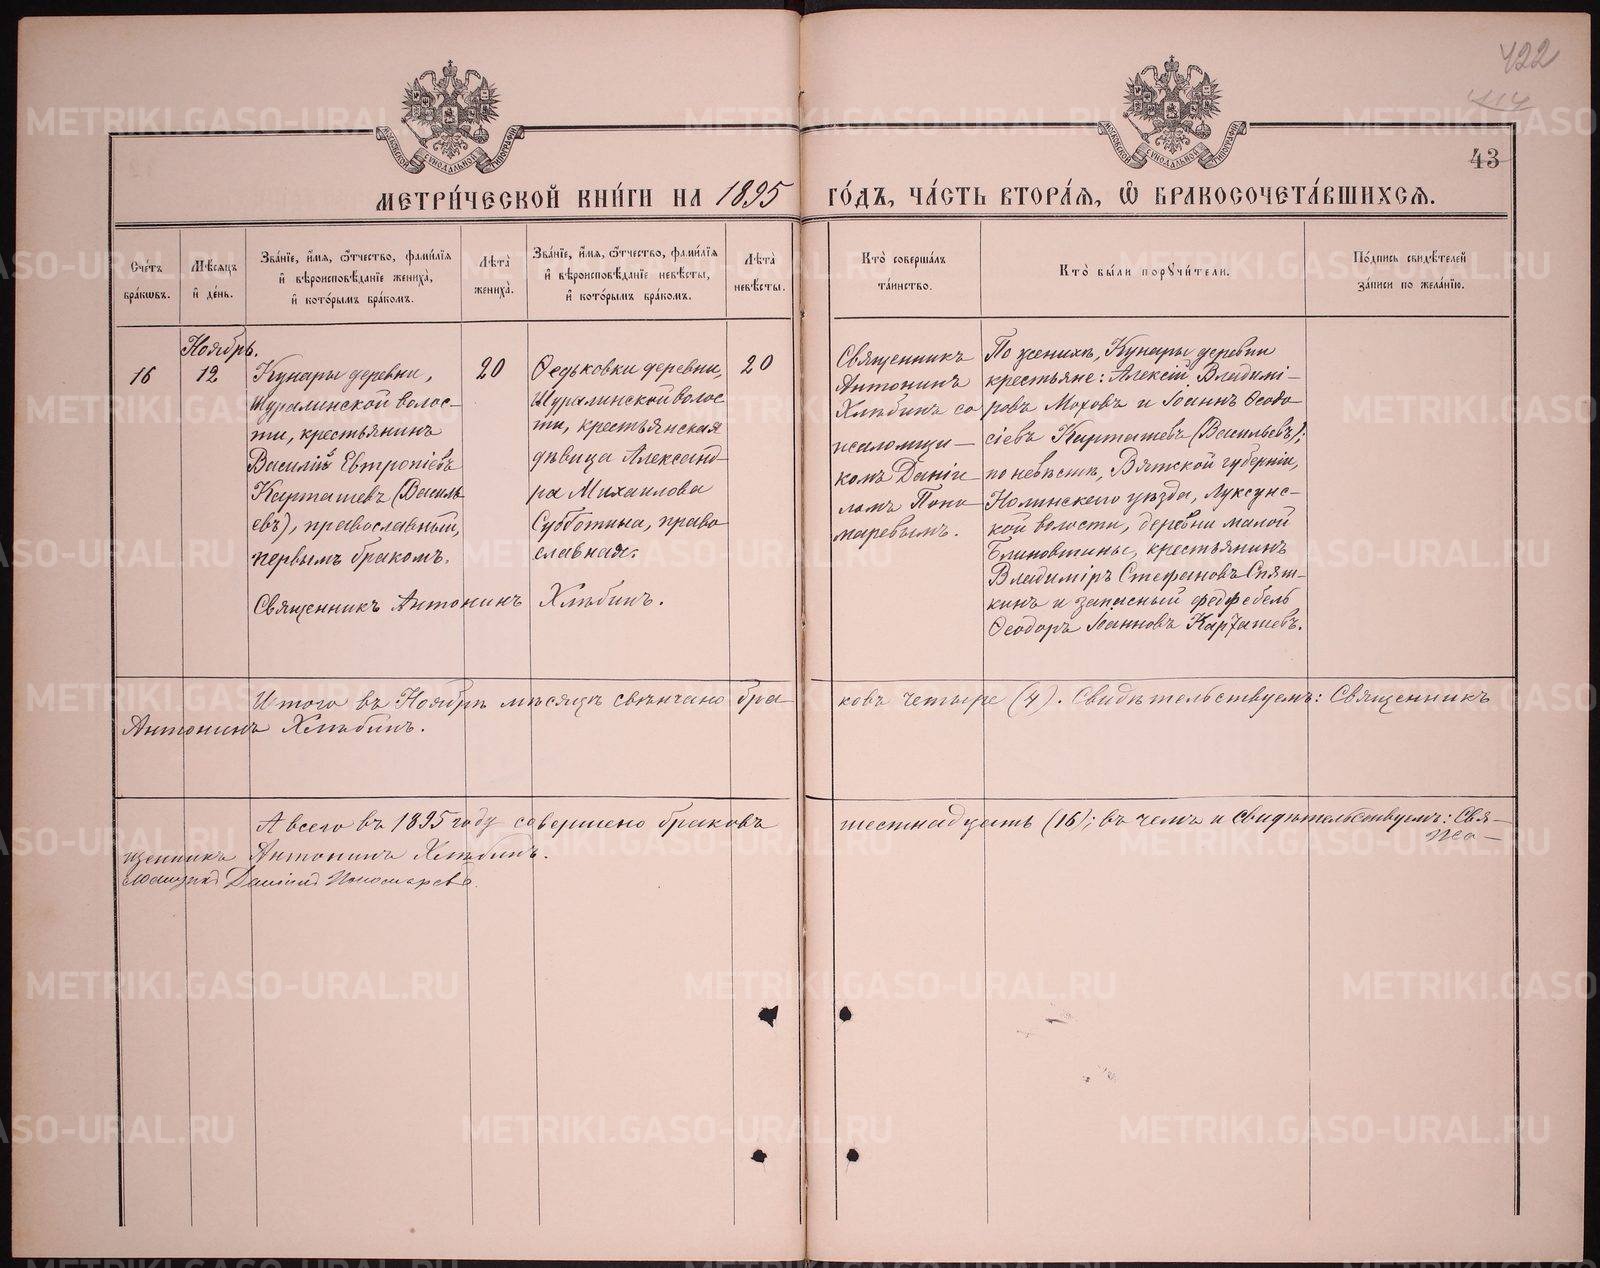 422
43
МОСКОВСКОЙ СѴНОДАЛЬНОЙ ТИПОГРАФІИ
МОСКОВСКОЙ СѴНОДАЛЬНОЙ ТИПОГРАФІИ
МЕТРИ́ЧЕСКОЙ КНИ́ГИ НА 1895 ГО́ДЪ, ЧА́СТЬ ВТОРА́Я, Ѽ БРАКОСОЧЕТА́ВШИХСЯ.
Сче́тъ бра́кѡвъ.
Мѣ́сяцъ и҆ де́нь.
Зва́нїе, и҆́мя, ѻ҆́тчество, фами́лїя и҆ вѣроисповѣ́данїе жениха̀, и҆ кото́рымъ бра́комъ.
Лѣ́та̀ жениха̀.
Зва́нїе, и҆́мя, ѻ҆́тчество, фами́лїя и҆ вѣроисповѣ́данїе невѣ́сты, и҆ кото́рымъ бра́комъ.
Лѣ́та̀ невѣ́сты.
Кто̀ соверша́лъ та́инство.
Кто̀ бы́ли порꙋчи́тели.
По́дпись свидѣ́телей за́писи по жела́нїю.
Ноябрь.
16
12
Кунары деревни,
Шуралинской волос-
ти, крестьянинъ
Василій Евтропіевъ
Карташевъ (Василь
евъ), православный,
первымъ бракомъ.
20
Ѳедьковки деревни,
Шуралинской волос
ти, крестьянская
дѣвица Александ-
ра Михаилова
Субботина, право
славная.
20
Священникъ Антонинъ Хлѣбинъ.
Священникъ
Антонинъ
Хлѣбинъ со
псаломщи-
комъ Даніи
ломъ Поно
маревымъ.
По женихѣ, Кунары деревни
крестьяне: Алексій Владимі-
ровъ Моховъ и Іоаннъ Ѳеодо-
сіевъ Карташевъ (Васильевъ);
по невѣстѣ, Вятской губерніи,
Нолинскаго уѣзда, Луксунс-
кой волости, деревни малой
Блиновщины, крестьянинъ
Владиміръ Стефановъ Спяш-
кинъ и запасный федфебель
Ѳеодоръ Іоанновъ Карташевъ.
Итого въ Ноябрѣ мѣсяцѣ свѣнчано бра-ковъ четыре (4). Свидѣтельствуемъ: Священникъ
Антонинъ Хлѣбинъ.
А всего въ 1895 году совершено браковъ шестнадцать (16); въ чемъ и свидѣтельствуемъ: Свя-
щенникъ Антонинъ Хлѣбинъ.
Пса-
ломщикъ Даніилъ Пономаревъ.
METRIKI.GASO-URAL.RU